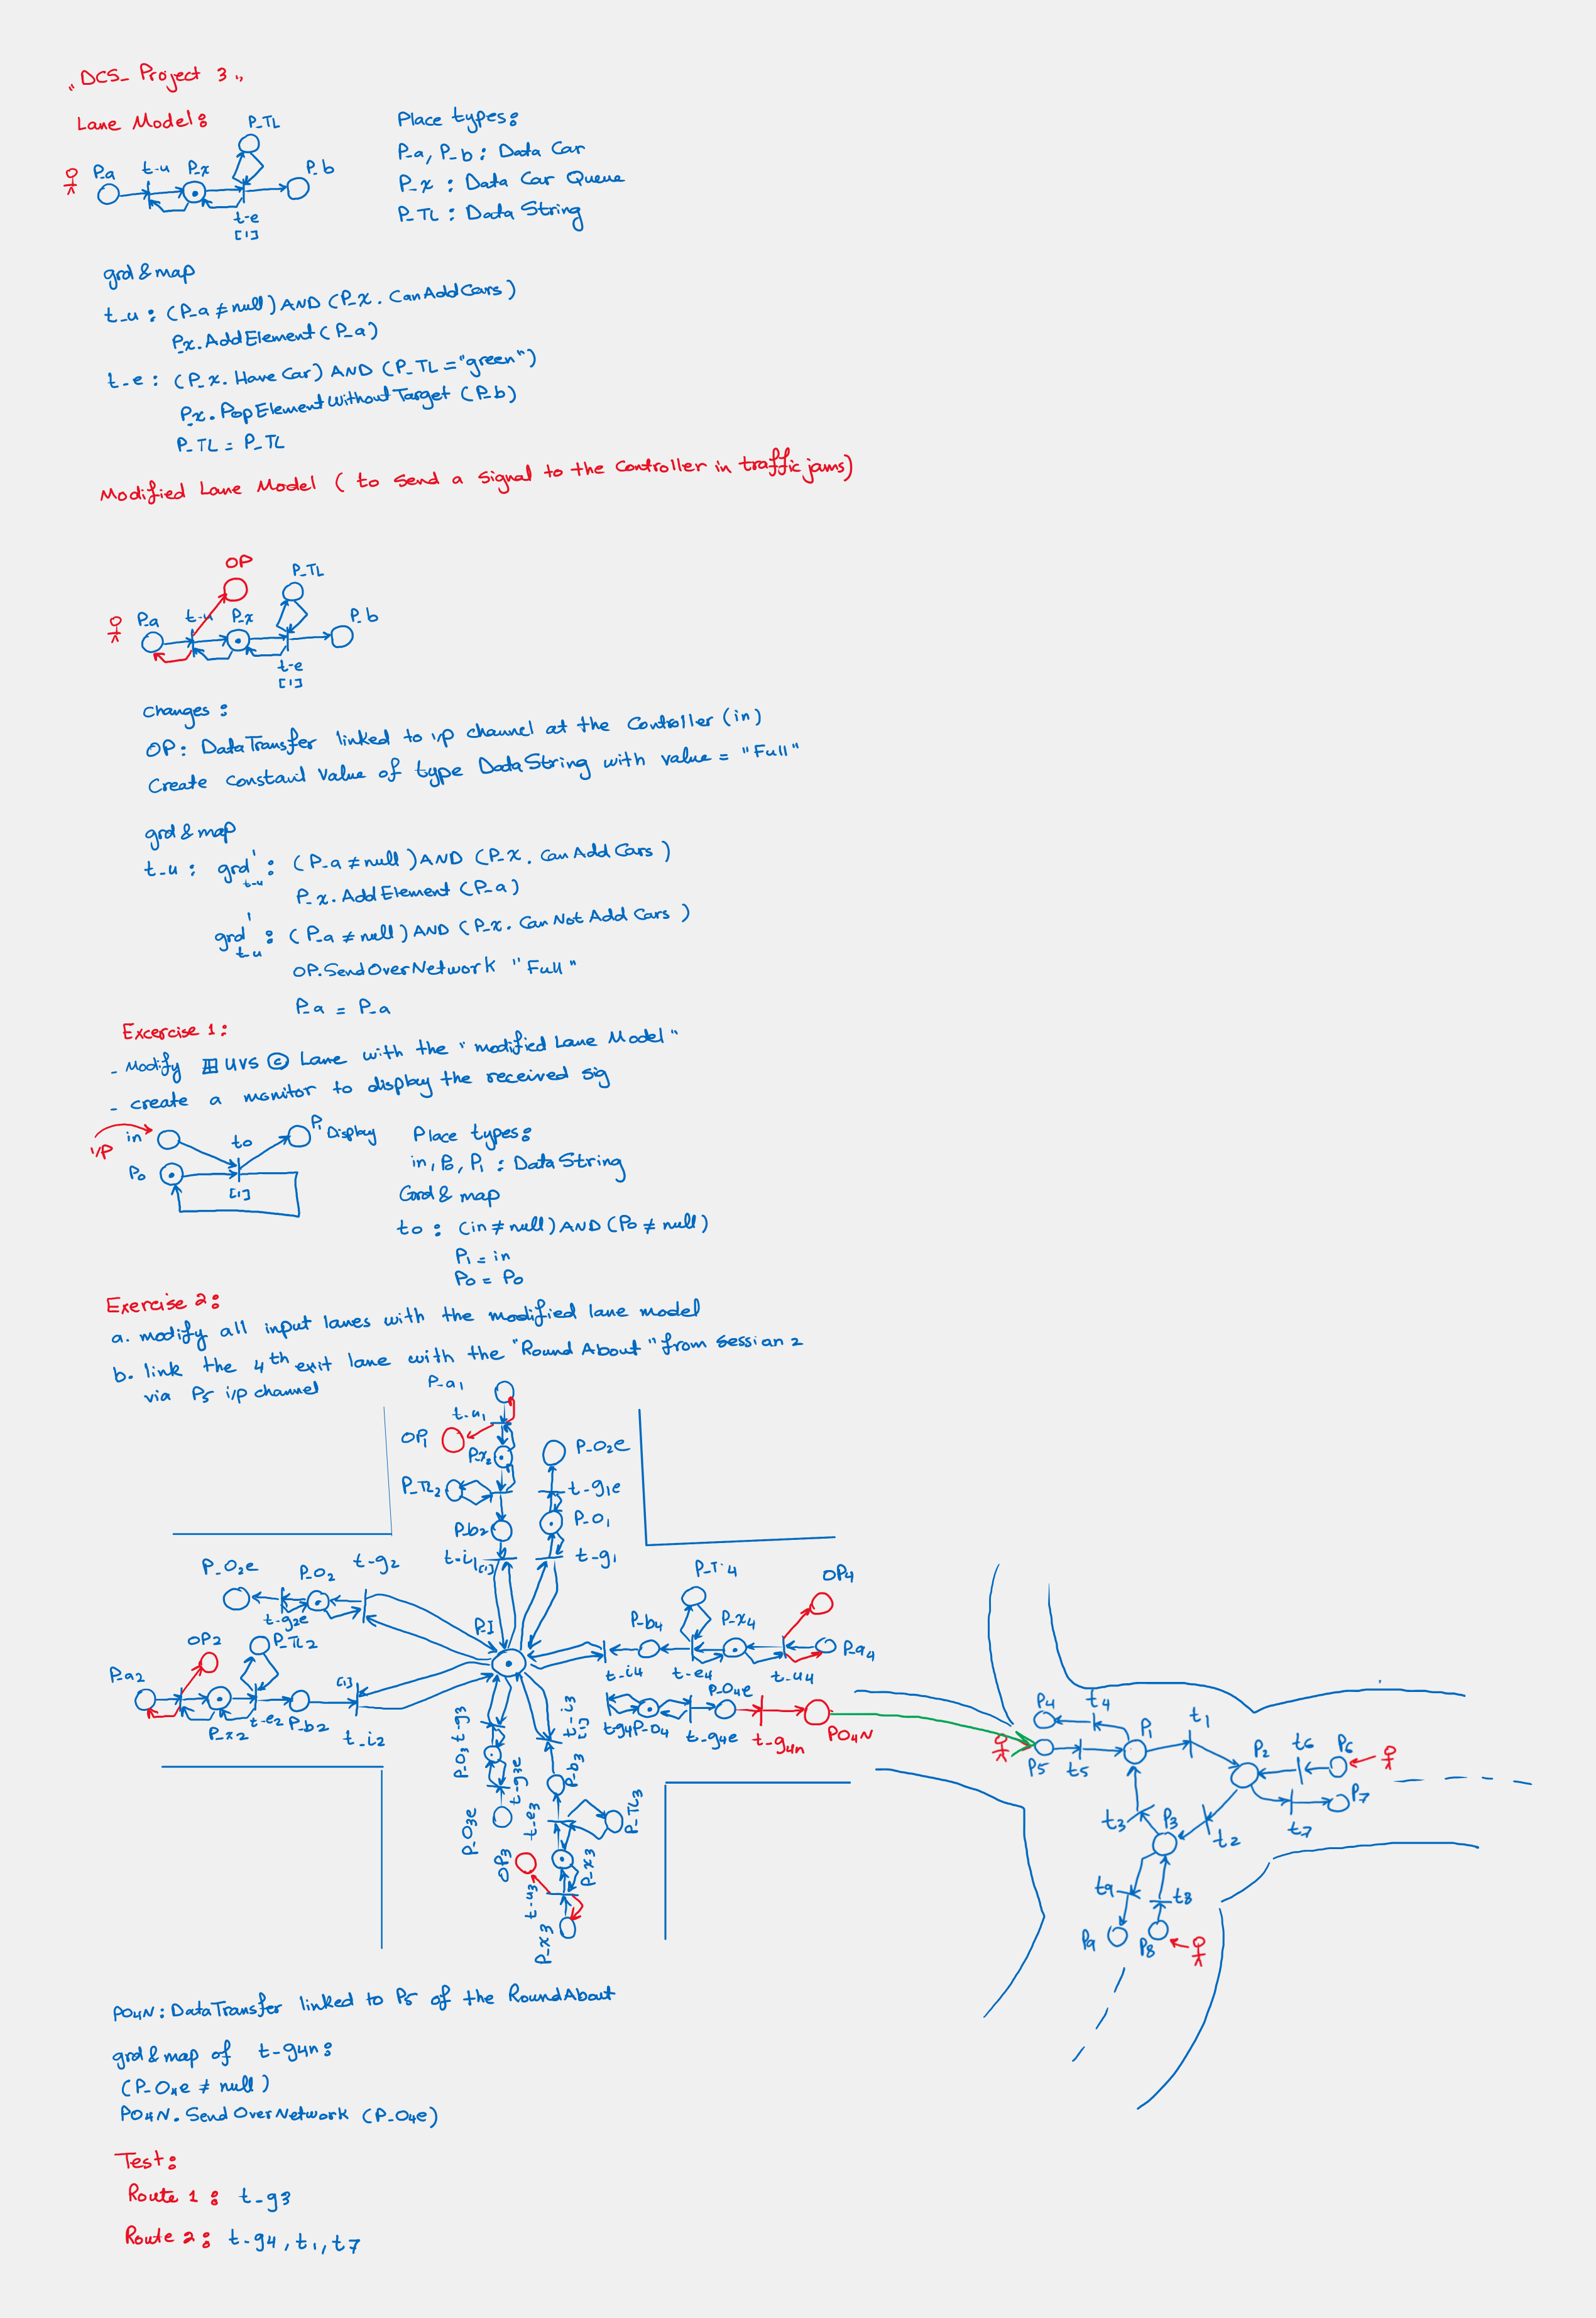 "DCS_ Project 3"
Lane Model:
P_TL
P_a
t_u
P_x
P_b
t_e
[1]
Place types:
P_a, P_b : Data Car
P_x : Data Car Queue
P_TL : Data String
grd & map
t_u : (P_a ≠ null) AND (P_x. CanAddCars)
P_x. AddElement (P_a)
t_e : (P_x. Have Car) AND (P_TL = "green")
P_x. PopElementWithoutTarget (P_b)
P_TL = P_TL
Modified Lane Model ( to send a signal to the Controller in traffic jams)
OP
P_TL
P_a
t_u
P_x
P_b
t_e
[1]
changes :
OP : DataTransfer linked to i/p channel at the Controller (in)
Create constant Value of type DataString with value = "Full"
grd & map
t_u : grd' t_u : (P_a ≠ null) AND (P_x. Can Add Cars )
P_x. Add Element (P_a)
grd' t_u : ( P_a ≠ null ) AND (P_x. Can Not Add Cars )
OP. SendOverNetwork "Full"
P_a = P_a
Excercise 1:
- Modify UVS © Lane with the "modified Lane Model"
- create a monitor to display the received sig
i/p
in
t0
P1 Display
P0
[1]
Place types:
in, P0, P1 : DataString
Gord & map
t0 : (in ≠ null) AND (P0 ≠ null)
P1 = in
P0 = P0
Exercise 2:
a. modify all input lanes with the modified lane model
b. link the 4th exit lane with the "Round About" from session 2
via P5 i/p channel
P_a1
t_u1
OP1
P_x2
P_O2e
P_TL2
t_g1e
P_b2
P_O1
t_i1 [1]
t_g1
P_O2e
P_O2
t_g2
t_g2e
P_TL4
OP4
P_b4
P_x4
P_a4
P_I
t_i4
t_e4
t_u4
OP2
P_TL2
P_a2
[1]
P_x2
t_e2
P_b2
t_i2
t_g4
P_O4
P_O4e
t_g4e
t_g4n
PO4N
t_g3
P_O3
t_g3e
P_O3e
t_i3
[1]
P_b3
t_e3
P_TL3
OP3
P_x3
t_u3
P_x3
P4
t4
P1
t1
P5
t5
P2
t6
P6
P7
t7
t3
P3
t2
t9
t8
P9
P8
PO4N : DataTransfer linked to P5 of the RoundAbout
grd & map of t_g4n :
(P_O4e ≠ null )
PO4N. Send OverNetwork (P_O4e)
Test :
Route 1 : t_g3
Route 2 : t_g4, t1, t7